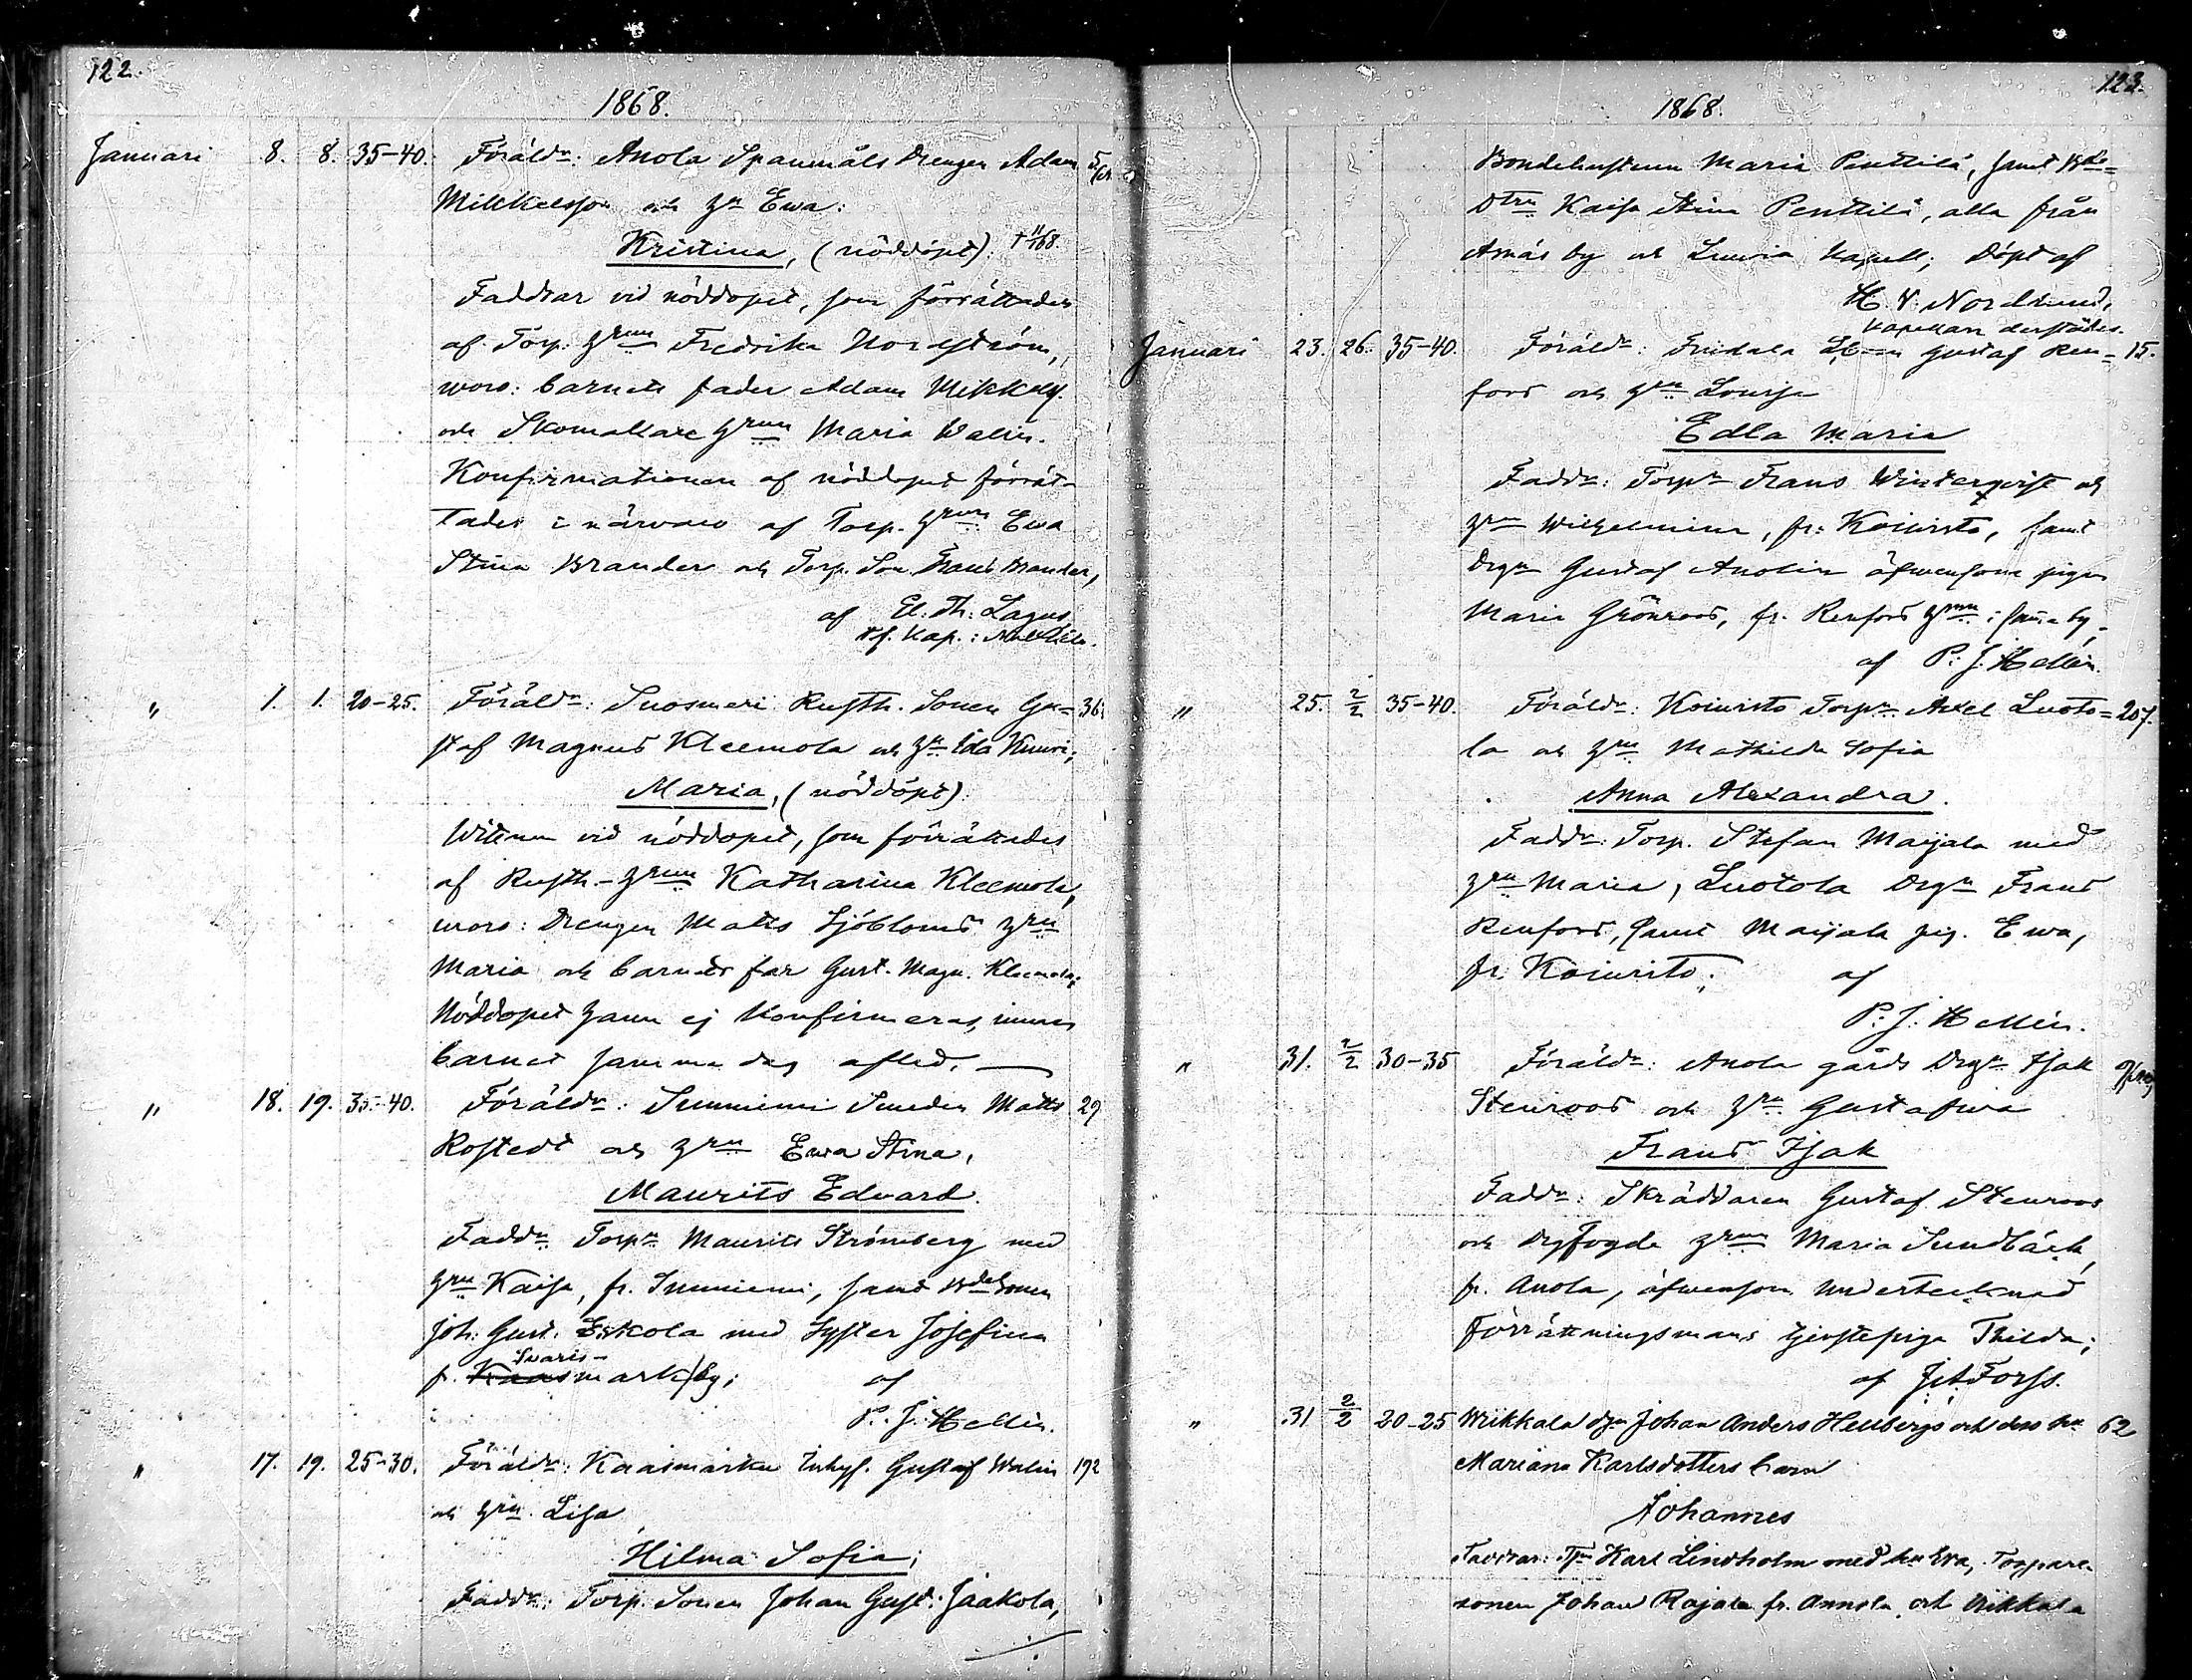 122.
1868.
Januari 8. 8. 35-40. Föräldr: Anola Spanmåls Drengen Adam
Mikkelsson och hu Ewa:
Kristina, (nöddöpt). † 11/1 68.
Faddrar vid nöddopet, som förrättades
af Torp. hrun Fredrika Nordström,
woro: barnets fader Adam Mikkels.
och Skomakare hrun Maria Walin.
Konfirmationen af nöddopet förrät-
tades i närvaro af Torp. hrun Ewa
Stina Brander och Torp. Son Frans Brander,
af El. Th. Lagus,
tf. Kap. i
" 1. 1. 20-25. Föräldr: Suosmeri Rusth. Sonen Gu= 36.
staf Magnus Kleemola och hu Ida Knuri;
Maria, (nöddöpt).
Wittnen vid nöddopet, som förrättades
af Rusth-hrun Katharina Kleemola,
woro: Drengen Matts Sjöbloms hru
Maria och barnets far Gust. Magn. Kleemola;
Nöddopet hann ej Konfirmeras, innan
barnet samma dag afled. —
" 18. 19. 35-40. Föräldr: Sunniemi Smeden Matts 29
Rostedt och hru Ewa Stina,
Maurits Edvard.
Faddr: Torpn Maurits Strömberg med
hru Kaisa, fr. Sunniemi, samt Bdesonen
Joh: Gust. Eskola med Syster Josefina
Suaris-
f. Kaasmark by; af
P. J. Hellén.
" 17. 19. 25-30. Föräldr: Kaasmarku Inhys. Gustaf Walin 192
och hru Lisa
Hilma Sofia;
Faddr: Torp. Sonen Johan Gust: Jaakola,
123.
1868.
Bondehustrun Maria Penttilä, samt Bde=
Dtrn Kaisa Stina Penttilä, alla från
Anäs by och Luvia Kapell; Döpt af
H. V. Nordlund,
Kapellan derstädes.
Januari 23. 26. 35-40. Föräldr: Gustaf Ren= 15.
fors och hru Lovisa
Edla Maria
Faddr: Torpn Frans Winterqvist och
hru Wilhelmina, fr: Koivisto, samt
Drgn Gustaf Anolin äfwensom pigan
Maria Grönroos, fr. Renfors hmn i samma by,
af P. J. Hellén.
" 25. 2/2 35-40. Föräldr: Koivisto Torpn Axel Luoto= 207.
la och hru Mathilda Sofia
Anna Alexandra.
Faddr: Torp. Stefan Maijala med
hru Maria, Luotola Drgn Frans
Renfors, samt Maijala pig. Ewa,
fr. Koivisto; af
P. J. Hellén.
" 31. 2/2 30-35 Föräldr: Anola gårds Drgn Isak
Stenroos och hru Gustafwa
Frans Isak
Faddr: Skräddaren Gustaf Stenroos
och Drgfogde hrun Maria Sundbäck,
fr. Anola, äfwensom Undertecknad
Förrättningsmans tjenstepiga Thilda;
af Forss.
" 31 2/2 20-25 Wiikkala drn Johan Anders Hellbergs och dess hu 62
Mariana Karlsdotters barn
Johannes
Faddrar: Tpn Karl Lindholm med hu Eva, Torpare-
sonen Johan Rajala fr. Annola och Wiikkala